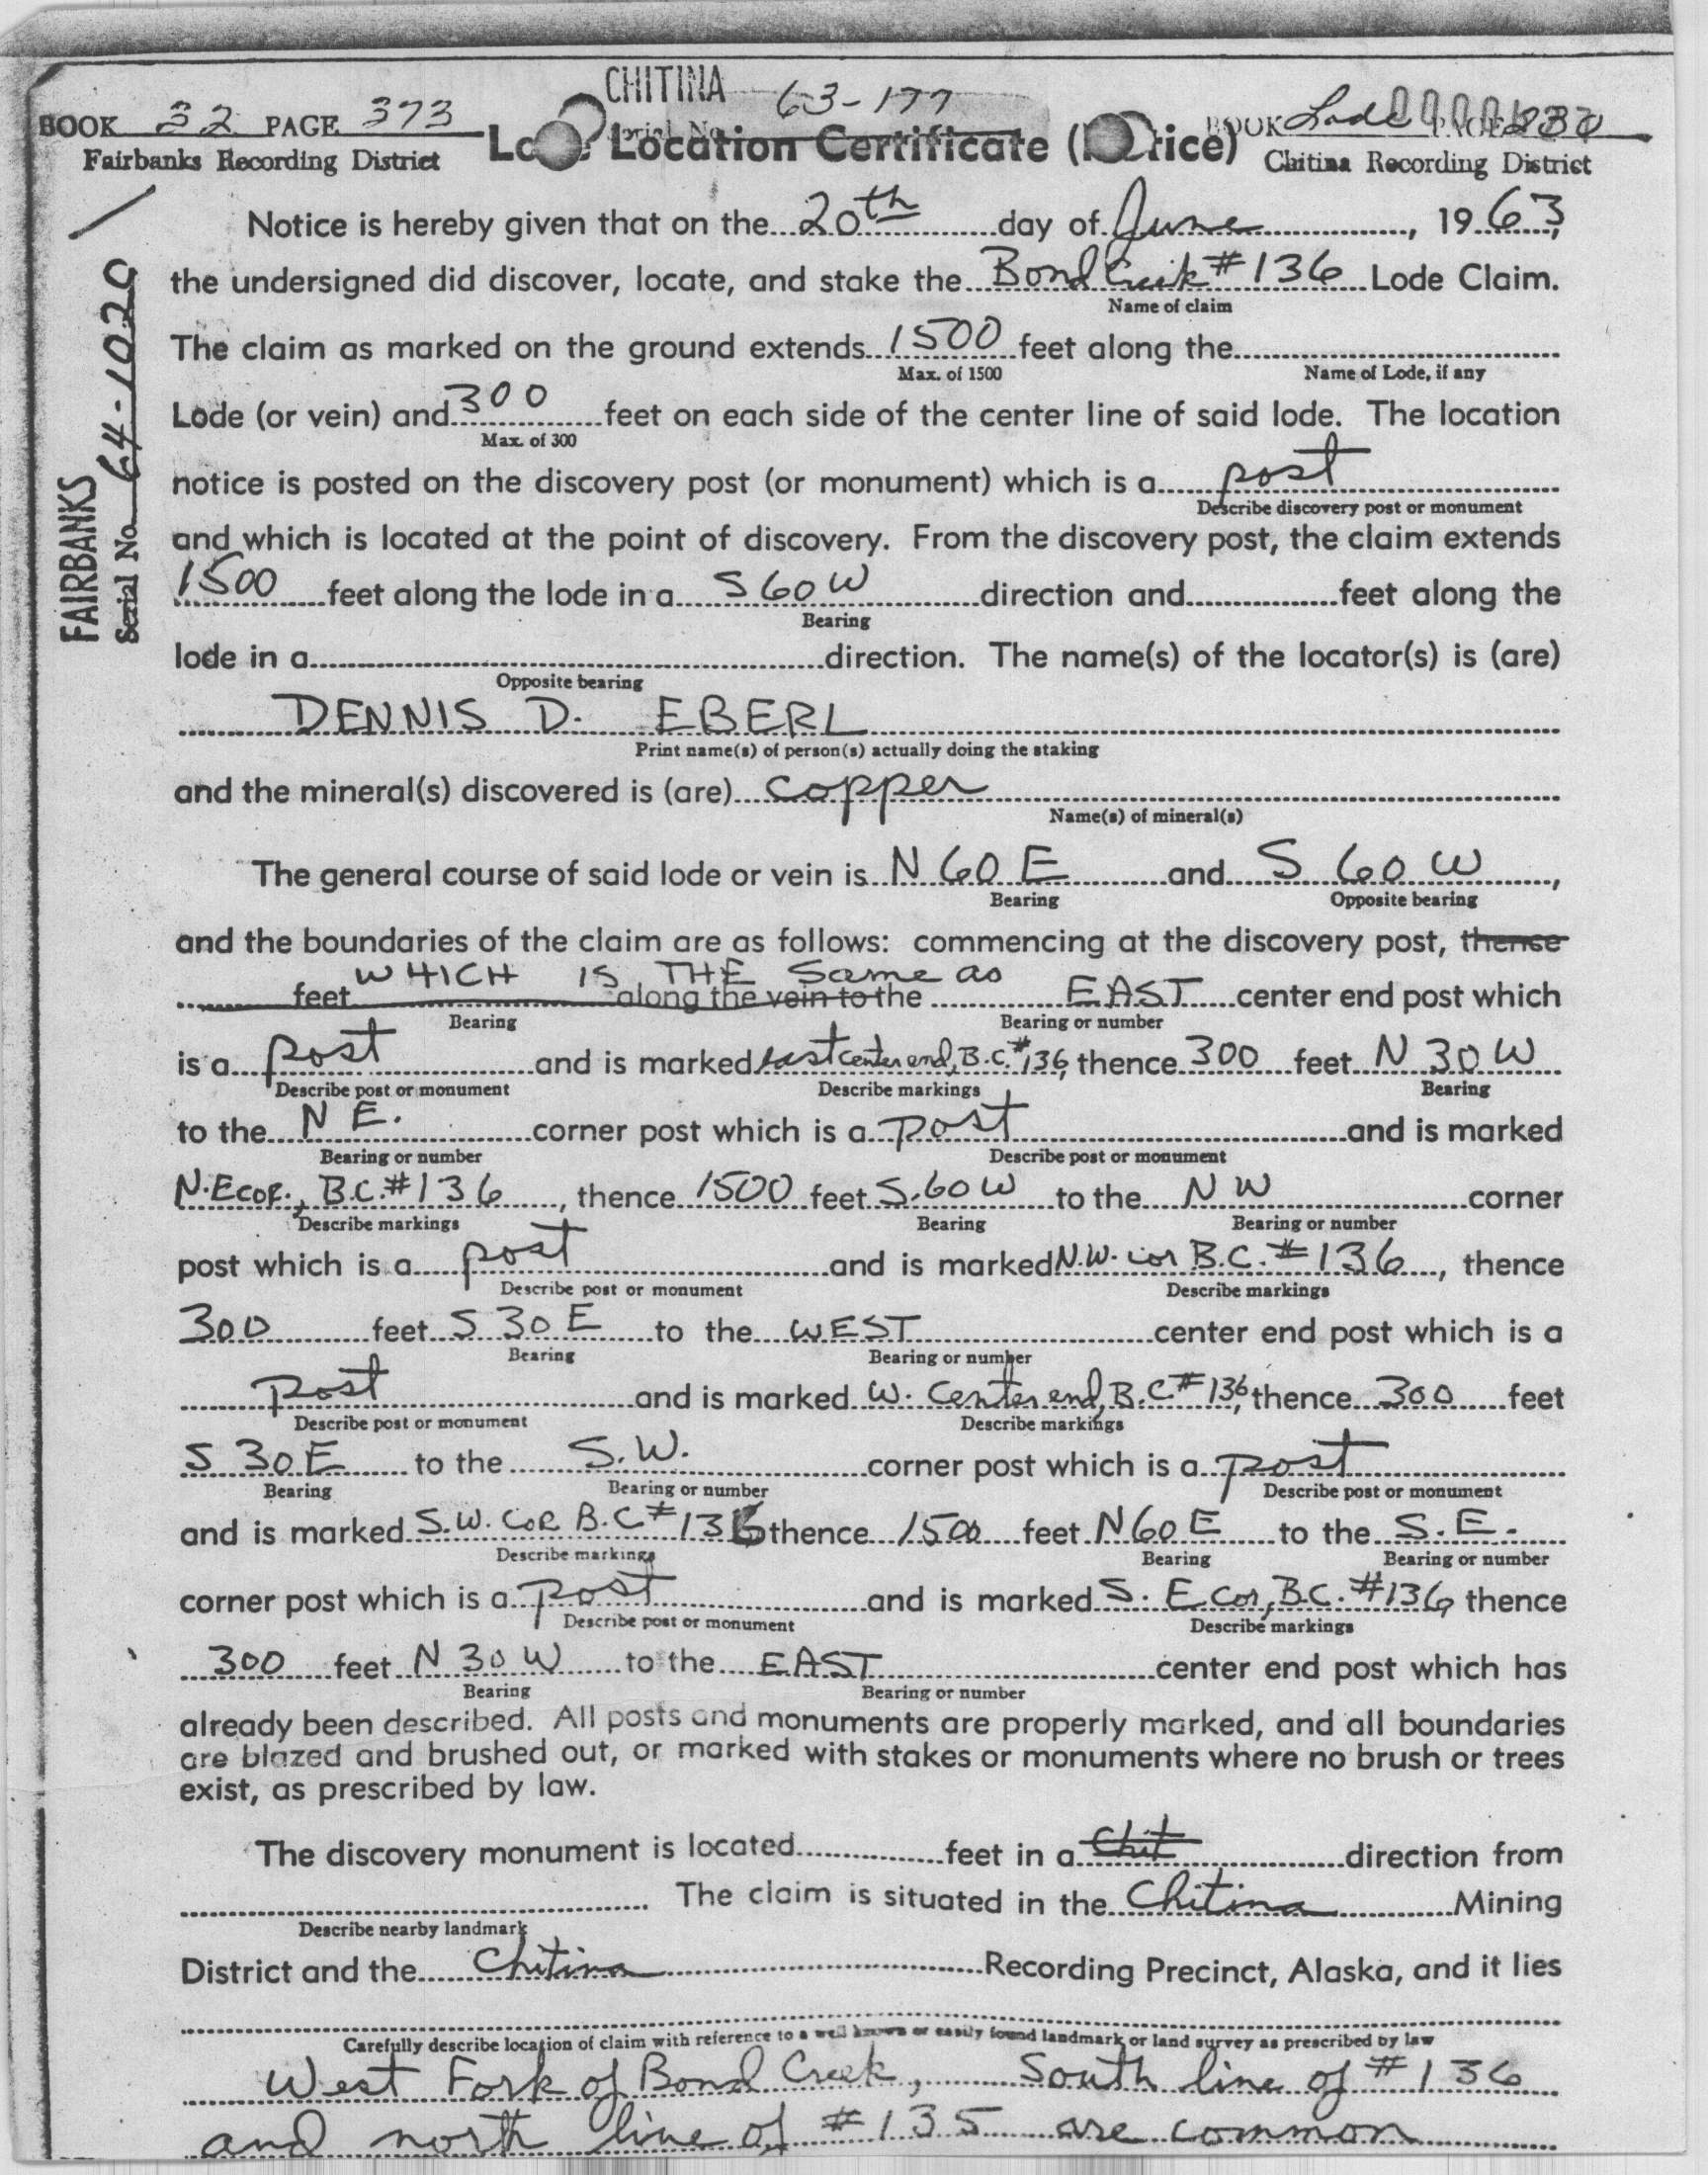 CHITINA 63-177
BOOK 32 PAGE 373
Fairbanks Recording District
Location Certificate
BOOK Lode
Chitina Recording District
FAIRBANKS
Serial No. 64-1020
Notice is hereby given that on the 20th day of June, 1963,
the undersigned did discover, locate, and stake the Bond Creek #136 Lode Claim.
Name of claim
The claim as marked on the ground extends 1500 feet along the
Max. of 1500 Name of Lode, if any
Lode (or vein) and 300 feet on each side of the center line of said lode. The location
Max. of 300
notice is posted on the discovery post (or monument) which is a post
Describe discovery post or monument
and which is located at the point of discovery. From the discovery post, the claim extends
1500 feet along the lode in a S 60 W direction and feet along the
Bearing
lode in a direction. The name(s) of the locator(s) is (are)
Opposite bearing
DENNIS D. EBERL
Print name(s) of person(s) actually doing the staking
and the mineral(s) discovered is (are) copper
Name(s) of mineral(s)
The general course of said lode or vein is N 60 E and S 60 W,
Bearing Opposite bearing
and the boundaries of the claim are as follows: commencing at the discovery post, thence
WHICH IS THE Same as
feet along the vein to the EAST center end post which
Bearing Bearing or number
is a post and is marked East center end, B.C. #136, thence 300 feet N 30 W
Describe post or monument Describe markings Bearing
to the N E. corner post which is a post and is marked
Bearing or number Describe post or monument
N.E cor., B.C. #136, thence 1500 feet S.60 W to the N W corner
Describe markings Bearing Bearing or number
post which is a post and is marked N.W. cor B.C. #136, thence
Describe post or monument Describe markings
300 feet S 30 E to the WEST center end post which is a
Bearing Bearing or number
post and is marked W. Center end, B.C. #136, thence 300 feet
Describe post or monument Describe markings
S 30 E to the S.W. corner post which is a post
Bearing Bearing or number Describe post or monument
and is marked S.W. COR B.C #136 thence 1500 feet N60 E to the S.E.
Describe markings Bearing Bearing or number
corner post which is a post and is marked S. E. Cor, B.C. #136 thence
Describe post or monument Describe markings
300 feet N 30 W to the EAST center end post which has
Bearing Bearing or number
already been described. All posts and monuments are properly marked, and all boundaries
are blazed and brushed out, or marked with stakes or monuments where no brush or trees
exist, as prescribed by law.
The discovery monument is located feet in a Chit direction from
The claim is situated in the Chitina Mining
Describe nearby landmark
District and the Chitina Recording Precinct, Alaska, and it lies
Carefully describe location of claim with reference to a well known or easily found landmark or land survey as prescribed by law
West Fork of Bond Creek, South line of #136
and north line of #135 are common